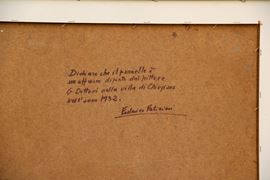 Dichiaro che il pannello è
un affresco dipinto dal pittore
G. Dottori nella villa di Chiugiana
nell'anno 1932.